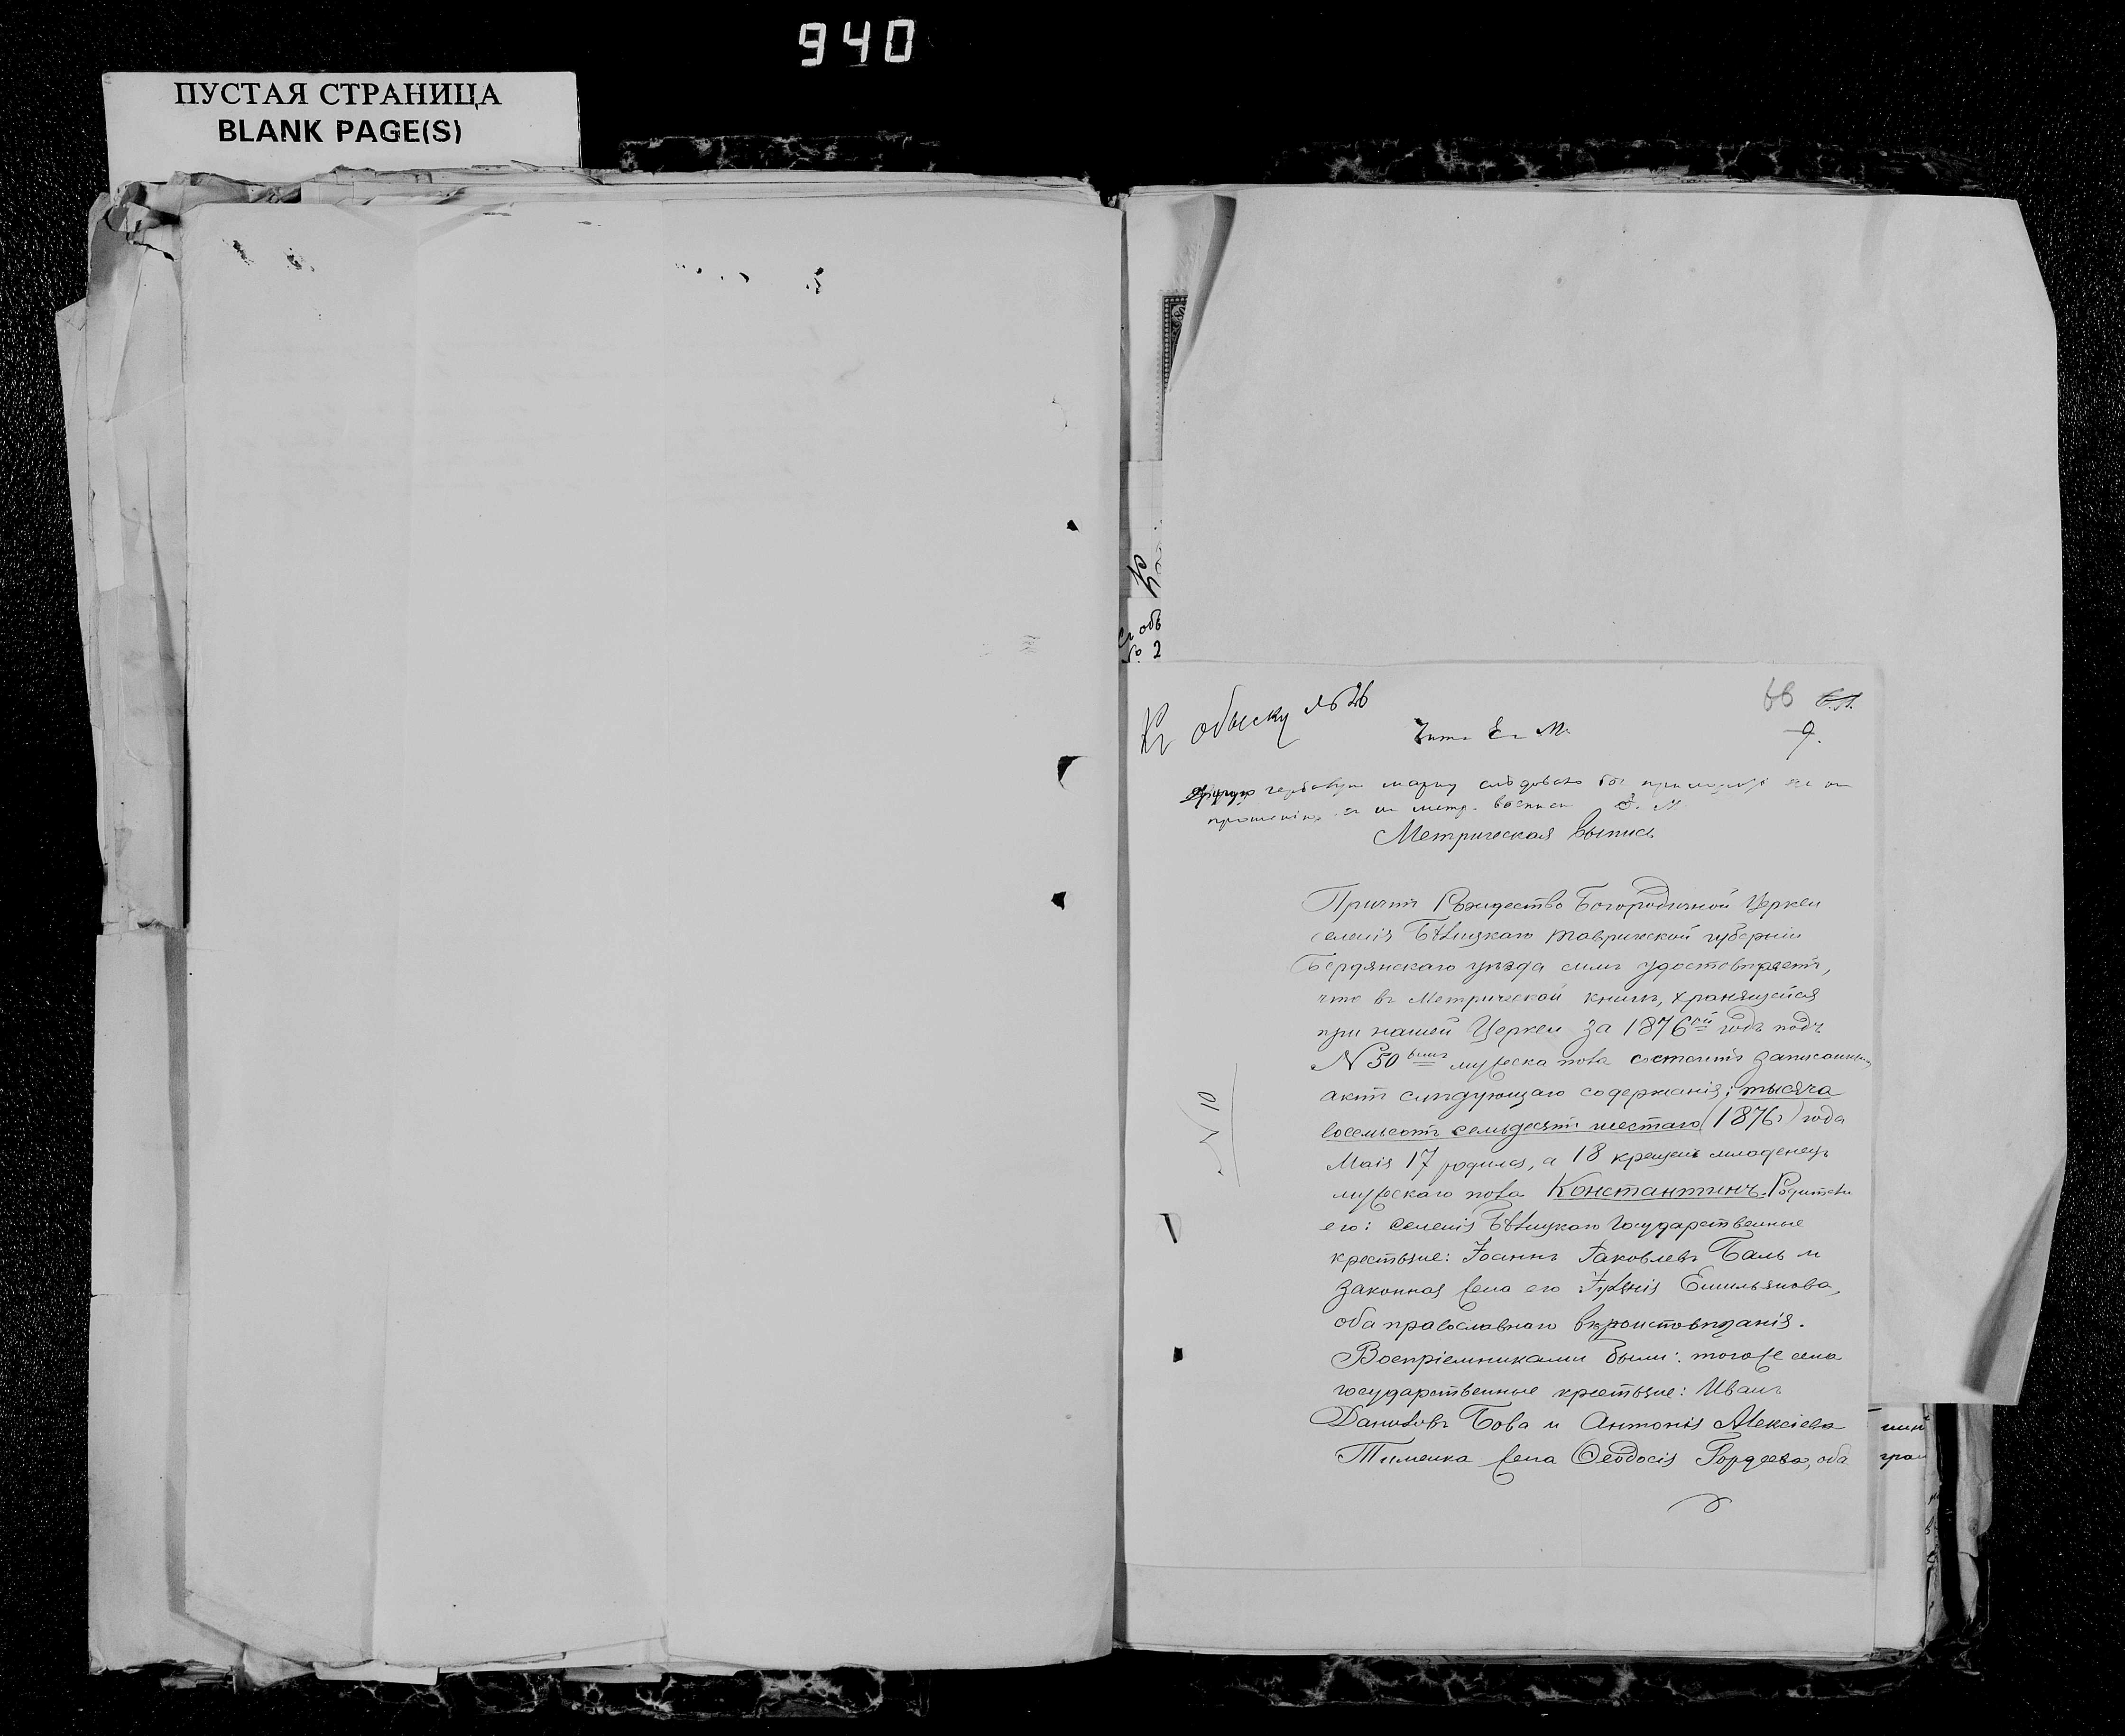 940
ПУСТАЯ СТРАНИЦА
BLANK PAGE(S)
Къ обыску № 26
марку слѣдовало бы
Метрическая выпись
Причтъ Рождество Богородичной Церкви
селенія Бѣлицкаго Таврической губерніи
Бердянскаго уѣзда симъ удостовѣряетъ,
что въ Метрической книгѣ, хранящейся
при нашей Церкви за 1876ой годъ подъ
N 50 мужеска пола состоитъ записаннымъ
актъ слѣдующаго содержанія: тысяча
восемьсотъ семьдесятъ шестаго (1876) года
Маія 17 родился, а 18 крещенъ младенецъ
мужескаго пола Константинъ. Родители
его: селенія Бѣлицкаго Государственные
крестьяне: Іоаннъ Іаковлевъ Баль и
законная жена его Емильянова,
оба православнаго вѣроисповѣданія.
Воспріемниками были: тогоже села
государственные крестьяне: Иванъ
Даниловъ Бова и Антонія Алексіева
жена Ѳеодосія Гордеева, оба
N 10
№ 2